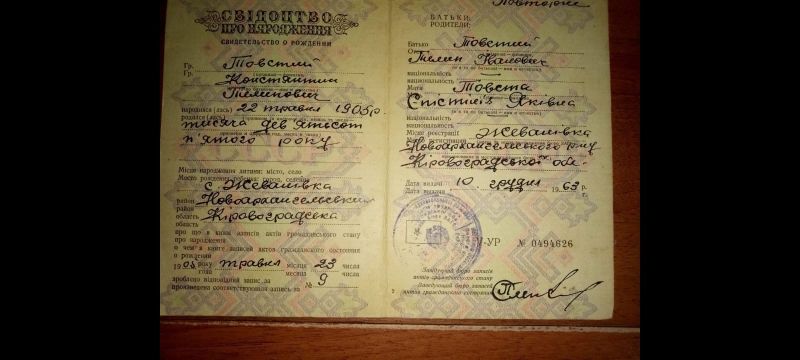 СВІДОЦТВО
ПРО НАРОДЖЕННЯ
СВИДЕТЕЛЬСТВО О РОЖДЕНИИ
Гр. Товстий
Гр. Констянтин
народився (лась) 22 травня 1905 р
родился (лась)
тисяча дев'ятьсот
п'ятого року
Місце народження дитини: місто, село
Место рождения ребенка: город, селение
с. Жеванівка
район Новоархангельський
район
область Кіровоградська
область
про що в книзі записів актів громадянського стану
про народження
о чем в книге записей актов гражданского состояния
о рождении
1905 року травня місяця 23 числа
года месяца числа
зроблено відповідний запис за
произведена соответствующая запись за № 9
Повторне
БАТЬКИ:
РОДИТЕЛИ:
Батько Товстий
національність —
национальность
Мати Товста
Яківна
національність
национальность
Місце реєстрації Жеванівка
Новоархангельського р-ну
Кіровоградської обл.
Дата видачі 10 грудня 1963 р.
Дата выдачи г.
V-УР № 0494626
Завідуючий бюро записів
актів громадянського стану
Заведующий бюро записей
актов гражданского состояния